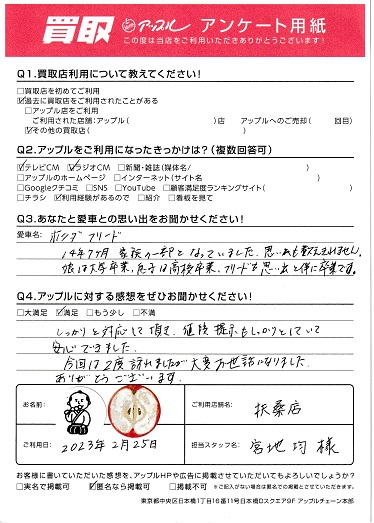 買取 アップル アンケート用紙
この度は当店をご利用いただきありがとうございます！
Q1.買取店利用について教えてください！
□買取店を初めてご利用
☑過去に買取店をご利用されたことがある
□アップル店をご利用
ご利用された店舗:アップル( )店 アップルへのご売却( 回目)
☑その他の買取店( )
Q2.アップルをご利用になったきっかけは？(複数回答可)
☑テレビCM ☑ラジオCM □新聞・雑誌(媒体名/ )
□アップルのホームページ □インターネット(サイト名 )
□Googleクチコミ □SNS □YouTube □顧客満足度ランキングサイト( )
□チラシ ☑利用経験があるので □紹介 □看板を見て
Q3.あなたと愛車との思い出をお聞かせください！
愛車名: ホンダ フリード
14年7ヶ月 家族の一部となっていました。思い出も数えきれません。
娘は大学卒業、息子は高校卒業、フリードも思い出と伴に卒業です。
Q4.アップルに対する感想をぜひお聞かせください！
□大満足 ☑満足 □もう少し □不満
しっかりと対応して頂き、値段提示もしっかりとしていて
安心できました。
今回は2度訪れましたが大変お世話になりました。
ありがとうございます。
お名前:
ご利用店舗名: 扶桑店
ご利用日: 2023年2月25日
担当スタッフ名: 宮地 均 様
お客様に書いていただいた感想を、アップルHPや広告に掲載させていただいてもよろしいでしょうか？
□実名で掲載可 ☑匿名なら掲載可 □掲載不可 ※ご記入がない場合は匿名での掲載とさせていただきます。
東京都中央区日本橋1丁目16番11号日本橋Dスクエア9F アップルチェーン本部